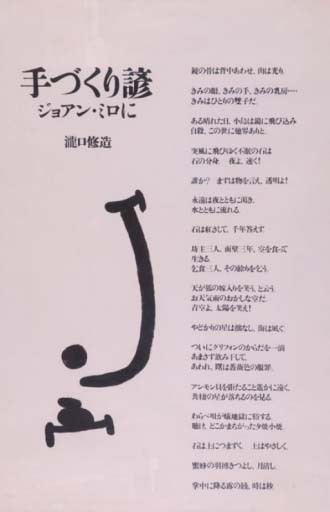 手づくり諺
ジョアン・ミロに
瀧口修造
鏡の骨は背中あわせ、肉は光り
きみの眼、きみの手、きみの乳房……
きみはひとりの雙子だ.
ある晴れた日、小鳥は鏡に飛び込み
自殺、この世に他界ありと.
突風に飛びゆく不眠の石は
石の分身 夜よ、速く!
誰か? まずは物を言え、透明よ!
永遠は夜とともに渇き、
水とともに流れる.
石は紅さして、千年答えず
坊主三人、面壁三年、空を食って
生きる.
乞食三人、その余りを乞う.
天が狐の嫁入りを笑う、と云う.
お天気雨のおかしな空だ.
青空よ、太陽を笑え!
やどかりの星は渡なし、海は凪ぐ
ついにグリフィンのからだを一滴
あまさず飲み干して、
あわれ、曙は薔薇色の眼窩.
アンモン貝を距たること遥かに遠く、
共棲の星が落ちるのを見る.
わらべ唄が蟻地獄に宿する.
聴け、どこかまちがった夕焼小焼.
石は上につまずく、 土はやさしく.
蜜蜂の羽搏きつよし、月清し.
掌中に降る露の
時は秋